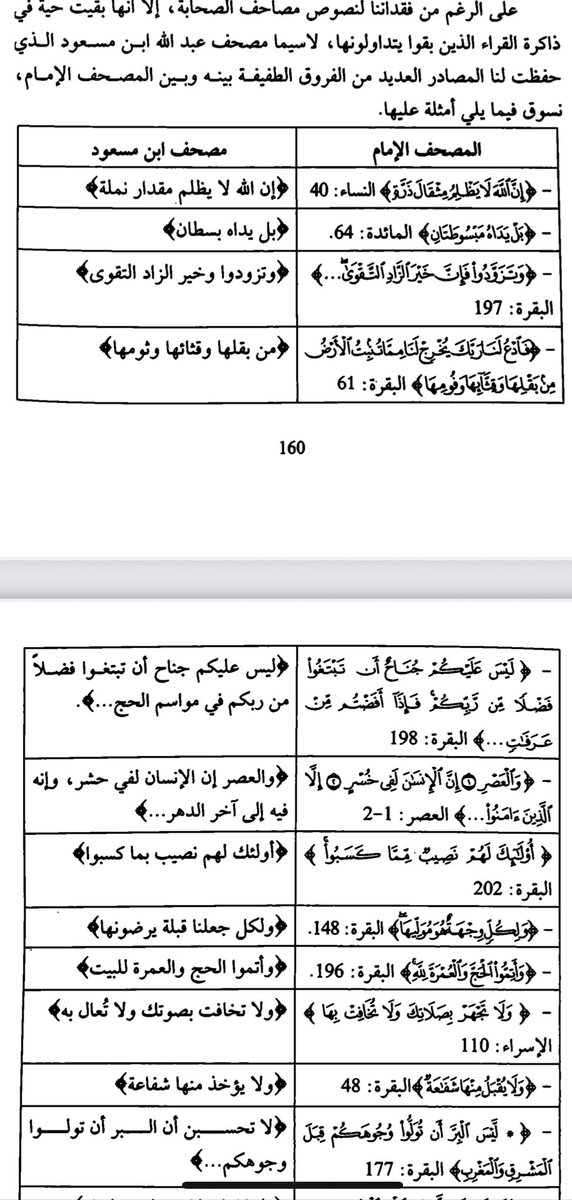 على الرغم من فقداننا لنصوص مصاحف الصحابة، إلا أنها بقيت حية في
ذاكرة القراء الذين بقوا يتداولونها، لاسيما مصحف عبد الله ابن مسعود الذي
حفظت لنا المصادر العديد من الفروق الطفيفة بينه وبين المصحف الإمام،
نسوق فيما يلي أمثلة عليها.
المصحف الإمام
مصحف ابن مسعود
- ﴿إِنَّ ٱللَّهَ لَا يَظۡلِمُ مِثۡقَالَ ذَرَّةٖ﴾ النساء: 40
﴿إن الله لا يظلم مقدار نملة﴾
- ﴿بَلۡ يَدَاهُ مَبۡسُوطَتَانِ﴾ المائدة: 64.
﴿بل يداه بسطان﴾
- ﴿وَتَزَوَّدُواْ فَإِنَّ خَيۡرَ ٱلزَّادِ ٱلتَّقۡوَىٰۖ...﴾
البقرة: 197
﴿وتزودوا وخير الزاد التقوى﴾
- ﴿فَٱدۡعُ لَنَا رَبَّكَ يُخۡرِجۡ لَنَا مِمَّا تُنۢبِتُ ٱلۡأَرۡضُ
مِنۢ بَقۡلِهَا وَقِثَّآئِهَا وَفُومِهَا﴾ البقرة: 61
﴿من بقلها وقثائها وثومها﴾
160
- ﴿لَيۡسَ عَلَيۡكُمۡ جُنَاحٌ أَن تَبۡتَغُواْ
فَضۡلٗا مِّن رَّبِّكُمۡۚ فَإِذَآ أَفَضۡتُم مِّنۡ
عَرَفَٰتٖ...﴾ البقرة: 198
﴿ليس عليكم جناح أن تبتغوا فضلاً
من ربكم في مواسم الحج...﴾.
- ﴿وَٱلۡعَصۡرِ ١ إِنَّ ٱلۡإِنسَٰنَ لَفِي خُسۡرٍ ٢ إِلَّا
ٱلَّذِينَ ءَامَنُواْ...﴾ العصر: 1-2
﴿والعصر إن الإنسان لفي حشر، وإنه
فيه إلى آخر الدهر...﴾
﴿أُوْلَٰٓئِكَ لَهُمۡ نَصِيبٞ مِّمَّا كَسَبُواْۚ﴾
البقرة: 202
﴿أولئك لهم نصيب بما كسبوا﴾
- ﴿وَلِكُلّٖ وِجۡهَةٌ هُوَ مُوَلِّيهَاۖ﴾ البقرة: 148.
﴿ولكل جعلنا قبلة يرضونها﴾
- ﴿وَأَتِمُّواْ ٱلۡحَجَّ وَٱلۡعُمۡرَةَ لِلَّهِۚ﴾ البقرة: 196.
﴿وأتموا الحج والعمرة للبيت﴾
- ﴿وَلَا تَجۡهَرۡ بِصَلَاتِكَ وَلَا تُخَافِتۡ بِهَا﴾
الإسراء: 110
﴿ولا تخافت بصوتك ولا تُعال به﴾
- ﴿وَلَا يُقۡبَلُ مِنۡهَا شَفَٰعَةٞ﴾ البقرة: 48
﴿ولا يؤخذ منها شفاعة﴾
- ﴿* لَّيۡسَ ٱلۡبِرَّ أَن تُوَلُّواْ وُجُوهَكُمۡ قِبَلَ
ٱلۡمَشۡرِقِ وَٱلۡمَغۡرِبِ﴾ البقرة: 177
﴿لا تحسبن أن البر أن تولوا
وجوهكم...﴾